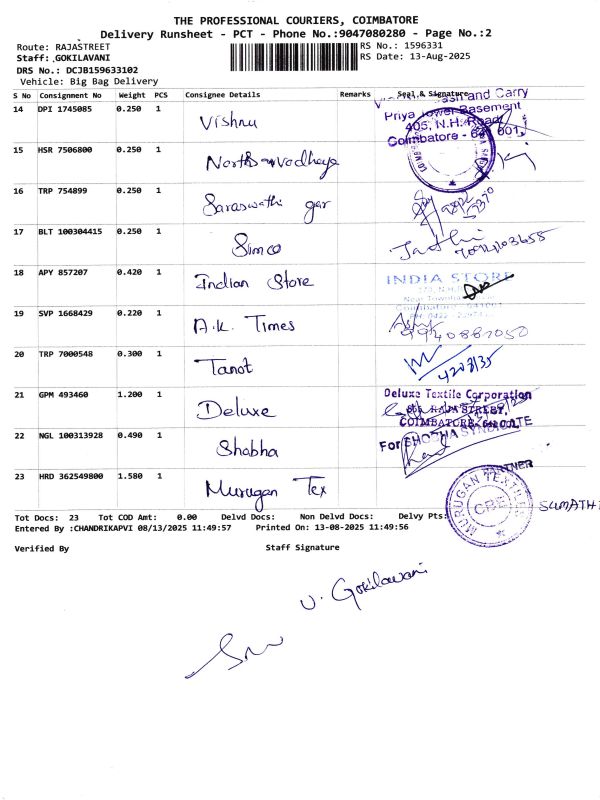 THE PROFESSIONAL COURIERS, COIMBATORE
Delivery Runsheet - PCT - Phone No.:9047080280 - Page No.:2
Route: RAJASTREET RS No.: 1596331
Staff: GOKILAVANI RS Date: 13-Aug-2025
DRS No.: DCJB159633102
Vehicle: Big Bag Delivery
S No Consignment No Weight PCS Consignee Details Remarks Seal & Signature
14 DPI 1745085 0.250 1 Vishnu
and Carry
Priya Tower Basement
405, N.H. Road
Coimbatore - 641 001.
15 HSR 7506800 0.250 1
16 TRP 754899 0.250 1 Saraswathi gar
17 BLT 100304415 0.250 1 Simco
18 APY 857207 0.420 1 Indian Store
INDIA STORE
19 SVP 1668429 0.220 1 A.K. Times
20 TRP 7000548 0.300 1 Tanot
21 GPM 493460 1.200 1 Deluxe
Deluxe Textile Corporation
COIMBATORE
22 NGL 100313928 0.490 1 Shobha
For SHOBHA SYNDICATE
PARTNER
23 HRD 362549800 1.580 1 Murugan Tex
MURUGAN TEXTILES
CBE
SUMATHI
Tot Docs: 23 Tot COD Amt: 0.00 Delvd Docs: Non Delvd Docs: Delvy Pts:
Entered By :CHANDRIKAPVI 08/13/2025 11:49:57 Printed On: 13-08-2025 11:49:56
Verified By Staff Signature
V. Gokilavani